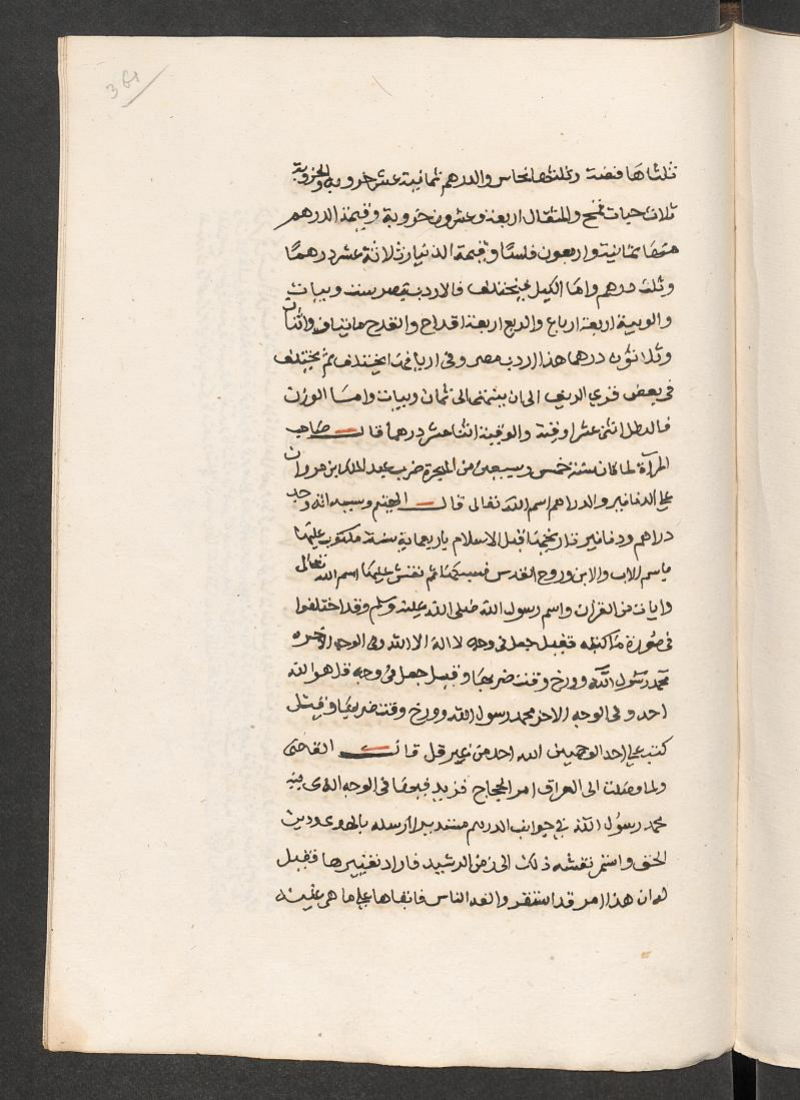 361
ثلثاها فضة وثلثها نحاس والدرهم ثمانية عشر خروبة والخروبة
ثلاث حبات قمح والمثقال اربعة وعشرون خروبة وقيمة الدرهم
منها ثمانية واربعون فلسا وقيمة الدينار ثلاثة عشر درهما
وثلث درهم واما الكيل فيختلف فالاردب بمصر ست ويبات
والويبة اربعة ارباع والربع اربعة اقداح والقدح مايتان واثنان
وثلاثون درهما هذا اردب مصر وفى اريافها يختلف ثم يختلف
فى بعض قري الريف الى ان ينتهى الى ثمان ويبات واما الوزن
فالرطل اثنى عشر اوقية والوقية اثنا عشر درهما قال صاحب
المرآة لما كان سنة خمس وسبعين من الهجرة ضرب عبد الملك بن مروان
على الدنانير والدراهم اسم الله تعالى قال الهيثم وسببه انه وجد
دراهم ودنانير تاريخها قبل الاسلام باربعماية سنة مكتوب عليها
باسم الاب والابن وروح القدس فسبكها ثم نقش عليها اسم الله تعالى
وايات من القران واسم رسول الله صلى الله عليه وسلم وقد اختلفوا
فى صورة ما كتبه فقيل جعل فى وجه لا اله الا الله وفى الوجه الاخر
محمد رسول الله وورخ وقت ضربها وقيل جعل فى وجه قل هو الله
احد وفى الوجه الاخر محمد رسول الله وورخ وقت ضربها وقيل
كتب على احد الوجهين الله احد من غير قل قال القاضى
ولما وصلت الى العراق امر الحجاج فزيد فيها فى الوجه الذى فيه
محمد رسول الله فى جوانب الدرهم مستديرا ارسله بالهدى ودين
الحق واستمر نقشه ذلك الى زمن الرشيد فاراد تغييرها فقيل
له ان هذا امر قد استقر والفه الناس فابقاها على ما هى عليه